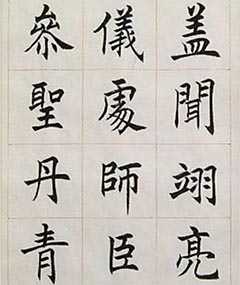 盖聞翊亮
儀處師臣
叅聖丹青